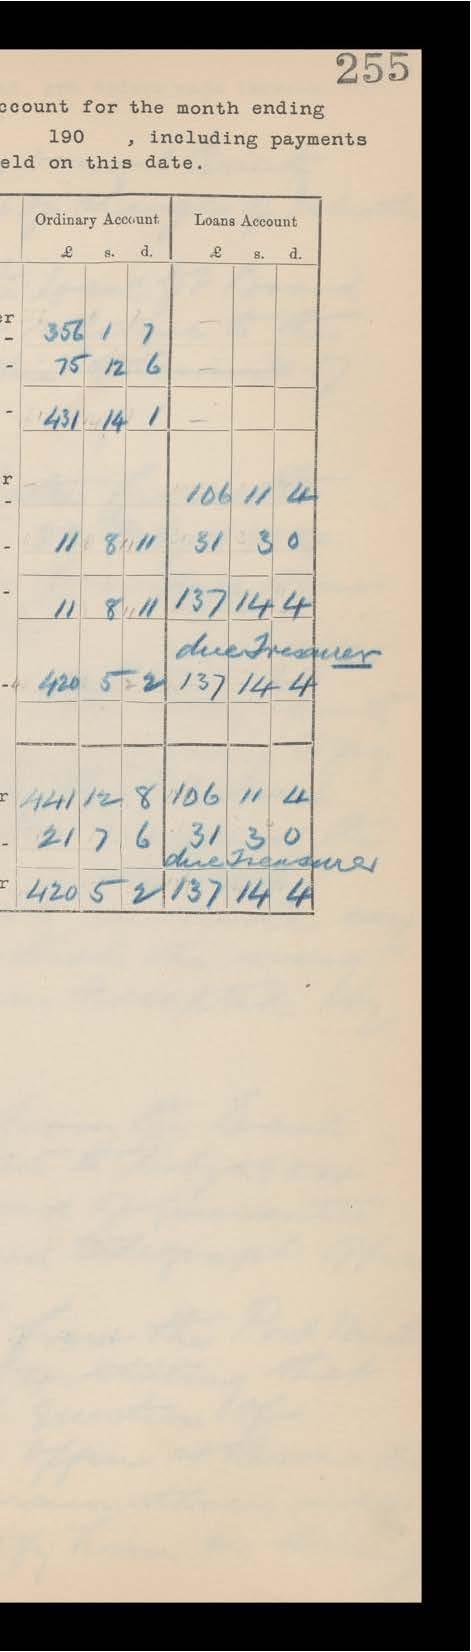 255
ccount for the month ending
190 , including payments
eld on this date.
Ordinary Account Loans Account
£ s. d. £ s. d.
er
- 356 1 7 —
- 75 12 6 —
- 431 14 1 —
r —
- 106 11 4
- 11 8 11 31 3 0
- 11 8 11 137 14 4
due Treasurer
- 420 5 2 137 14 4
r 441 12 8 106 11 4
- 21 7 6 31 3 0
due Treasurer
r 420 5 2 137 14 4